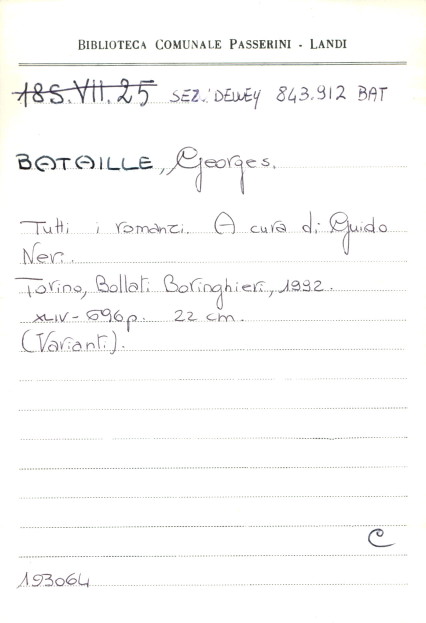 BIBLIOTECA COMUNALE PASSERINI - LANDI
18S.VII.25 SEZ. DEWEY 843.912 BAT
BATAILLE, Georges.
Tutti i romanzi. A cura di Guido
Neri.
Torino, Bollati Boringhieri, 1992.
XLIV-696p. 22 cm.
(Varianti).
C
193064